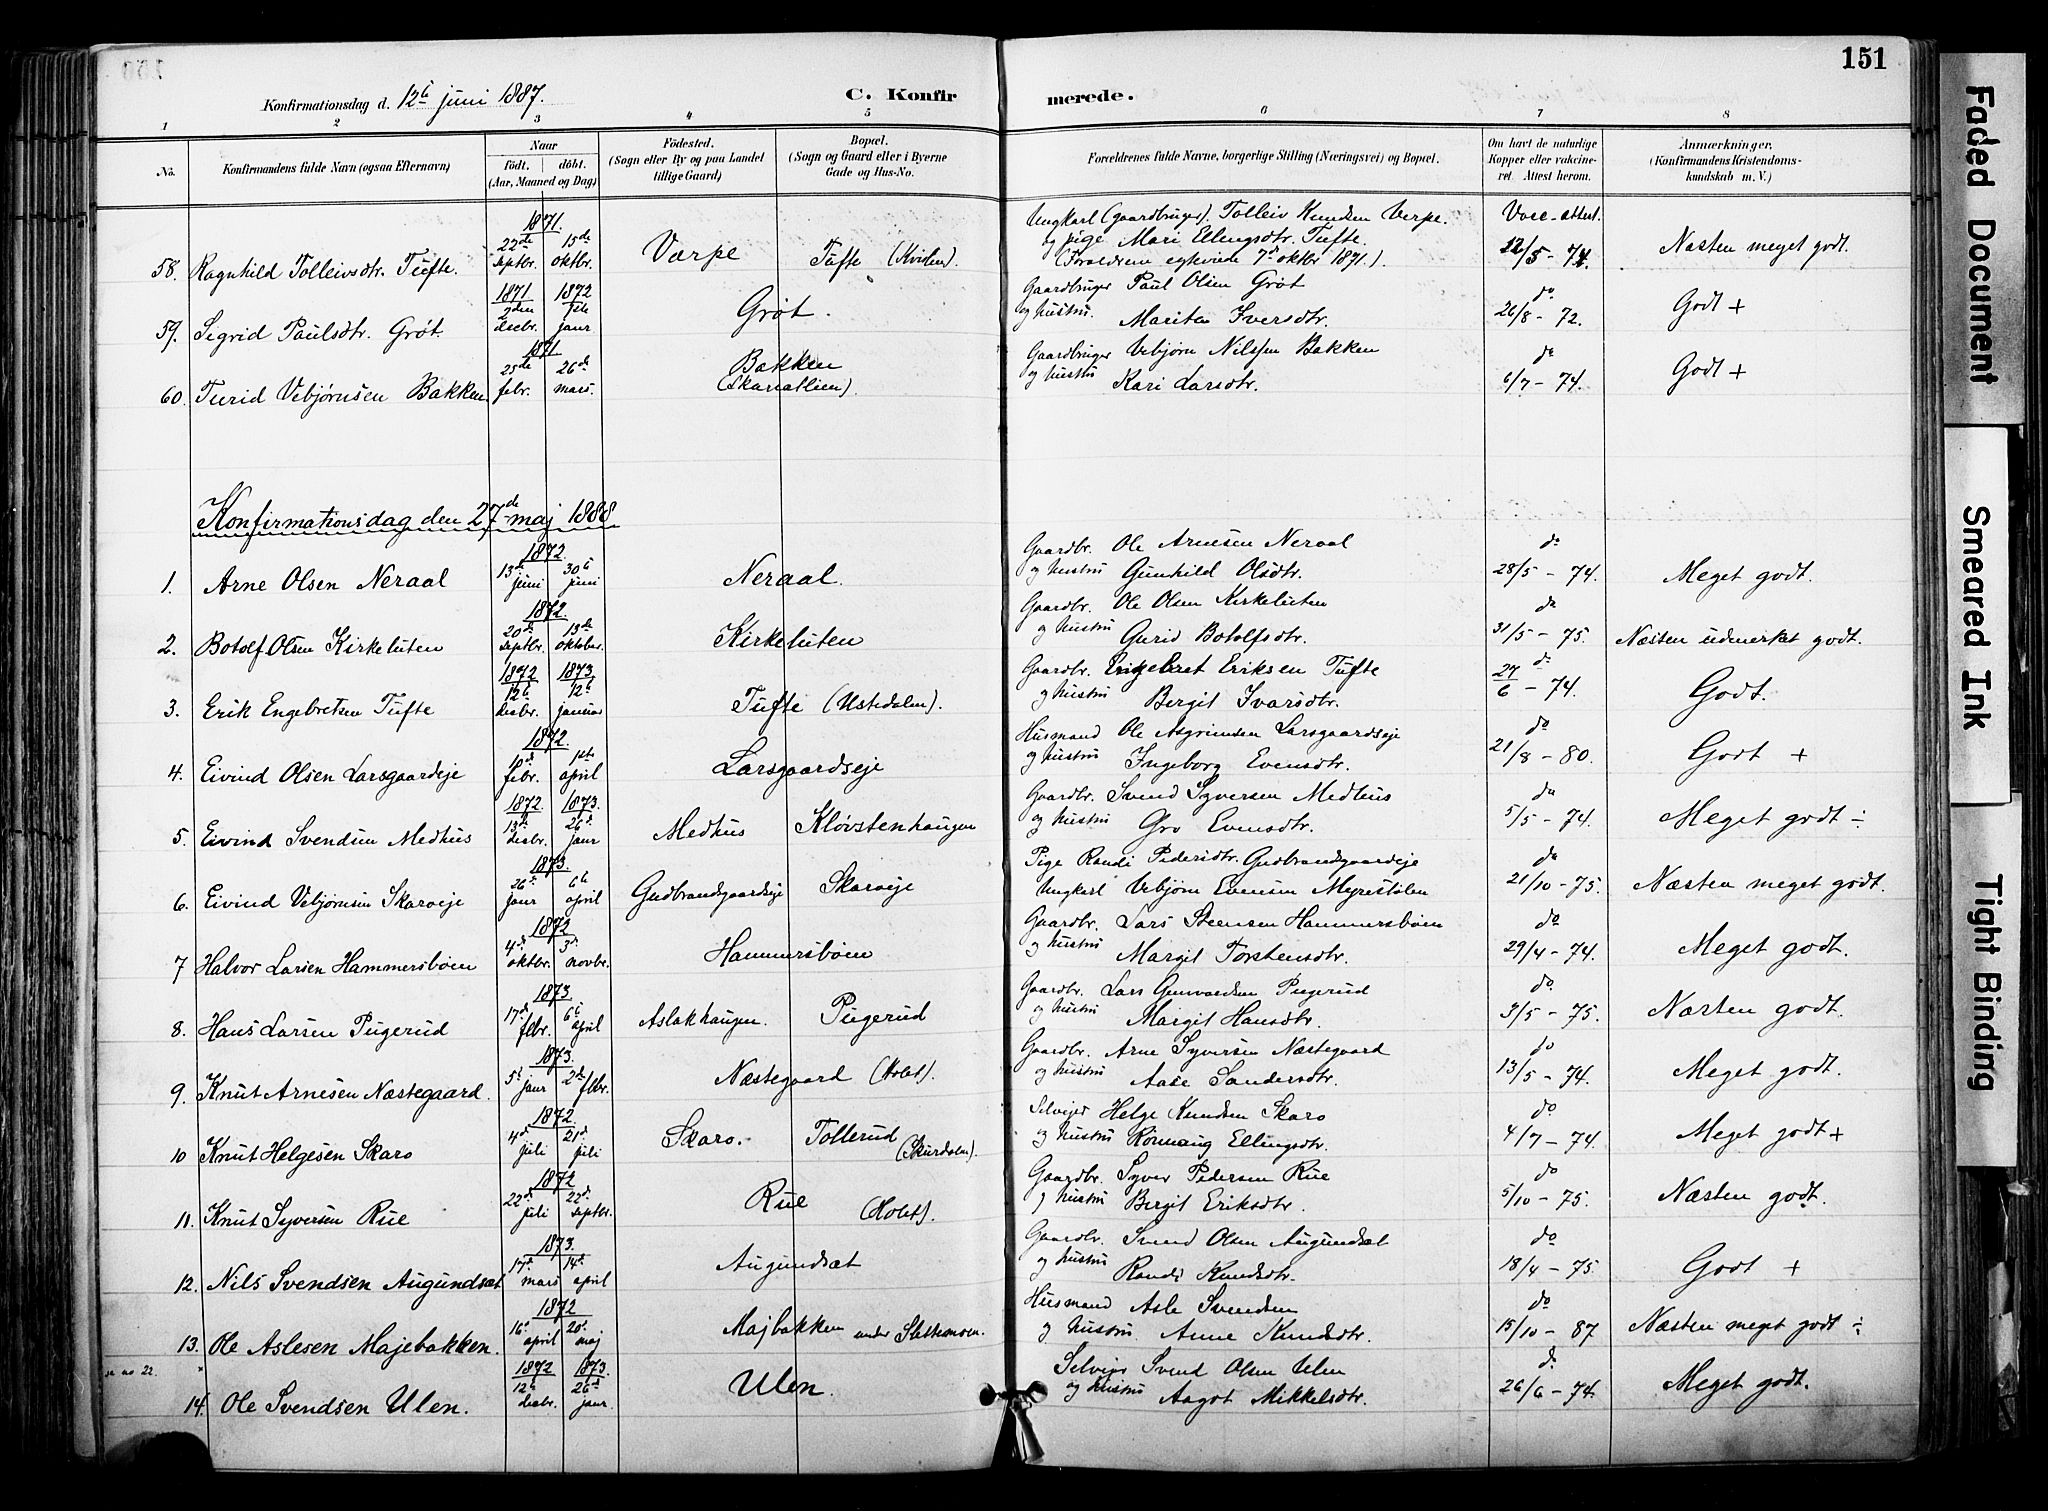 151
Konfirmationsdag d. 12te juni 1887.
C. Konfirmerede.
1 2 3 4 5 6 7 8
No.
Konfirmandens fulde Navn (ogsaa Efternavn)
Naar
födt. döbt.
(Aar, Maaned og Dag)
Födested.
(Sogn eller By og paa Landet tillige Gaard)
Bopæl.
(Sogn og Gaard eller i Byerne Gade og Hus-No.
Forældrenes fulde Navne, borgerlige Stilling (Næringsvei) og Bopæl.
Om havt de naturlige Kopper eller vakcineret. Attest herom.
Anmærkninger,
(Konfirmandens Kristendomskundskab m. V.)
58. Ragnhild Tolleivsdtr. Tufte. 1871. 22de septbr. 15de oktbr. Værpe Tufte (Kvilen). Ungkarl (gaardbruger). Tolleiv Knudsen Verpe. og pige Mari Ellingsdtr. Tufte. (Forældrene egtviede 7de oktbr 1871.). Vacc. attest. 22/5 - 74. Næsten meget godt.
59. Sigrid Paulsdtr. Grøt. 1871 2den decbr. 1872 7de jaur Grøt. Gaardbruger Paul Olsen Grøt og hustru. Mariten Iversdtr. do 26/8 - 72. Godt +
60. Turid Vebjørnsen Bakken. 1871 25de febr. 26de mars. Bakken (Skurdalien). Gaardbruger Vebjørn Nilssen Bakken og hustru Kari Larsdtr. do 6/7 - 74. Godt +
Konfirmationsdag den 27de maj 1888
1. Arne Olsen Neraal 1872. 13de juni 30te juni Neraal. Gaardbr. Ole Arnesen Neraal og hustru Gunhild Olsdtr. do 28/5 - 74. Meget godt.
2. Botolf Olsen Kirkeluten 1872. 20de septbr. 13de oktober. Kirkeluten Gaardbr. Ole Olsen Kirkeluten og hustru Gurid Botolfsdtr. do 31/5 - 75. Næsten udmerket godt.
3. Erik Engebretsen Tufte 1872 12te decbr. 1873 12te januar Tufte (Ustedalen). Gaardbr. Engebret Eriksen Tufte og hustru Bergit Ivarsdtr. do 27/6 - 74. Godt.
4. Eivind Olsen Larsgaardeje 1872. 10de febr. 1ste april Larsgaardseje Husmand Ole Asgrimsen Larsgaardseje og hustru Ingeborg Evensdtr. do 21/8 - 80. Godt +
5. Eivind Svendsen Medhus 1872. 13de decbr. 1873. 26de jaur Medhus Kløvstenhaugen Gaardbr. Svend Syversen Medhus og hustru Gro Evensdtr. do 5/5 - 74. Meget godt ÷
6. Eivind Vebjørnsen Skarveje 1873. 26de jaur 6te april Gudbrandsgaardseje Skarveje Pige Randi Pedersdtr. Gudbrandsgaardeje Ungkarl Vebjørn Evensen Myrestølen do 21/10 - 75. Næsten meget godt.
7 Halvor Larsen Hammersbøen 1872 4de oktbr. 3de novbr. Hammersbøen Gaardbr. Lars Steensen Hammersbøen og hustru Margit Torstensdtr. do 29/4 - 74. Meget godt.
8. Hans Larsen Pugerud 1873. 17de febr. 6te april Aslakhaugen. Pugerud Gaardbr. Lars Gunvordsen Pugerud og hustru Margit Hansdtr. do. 3/5 - 75. Næsten godt.
9. Knut Arnesen Næstegaard. 1873. 5te jaur 2den febr. Næstegaard (Holet). Gaardbr. Arne Syversen Næstegaard og hustru Aase Sandersdtr. do 13/5 - 74. Meget godt.
10 Knut Helgesen Skaro 1872. 4de juli 21de juli Skaro. Tollerud (Skurdalen). Selvejer Helge Knudsen Skaro og hustru Rønnaug Ellingsdtr. do 4/7 - 74. Meget godt +
11. Knut Syversen Rue 1872 22de juli 22de septbr. Rue (Holet). Gaardbr. Syver Pedersen Rue og hustru Bergit Eriksdtr. do 5/10 - 75. Næsten godt.
12. Nils Svendsen Augundsæt 1873. 17de mars 14de april Augundsæt Gaardbr. Svend Olsen Augundsæt og hustru Randi Knudsdtr. do 18/4 - 75. Godt +
13. Ole Aslesen Majebakken. 1872 16de april 20de maj Majbakken under Slettemoen. Husmand Asle Svendsen og hustru. Anne Knudsdtr. do 15/10 - 87 Næsten meget godt ÷
se no 22.
14. Ole Svendsen Ulen. 1872 12te decbr. 1873. 26de jaur. Ulen. Selvejer Svend Olsen Ulen og hustru Aagot Mikkelsdtr. do 26/6 - 74. Meget godt.
Faded Document
Smeared Ink
Tight Binding